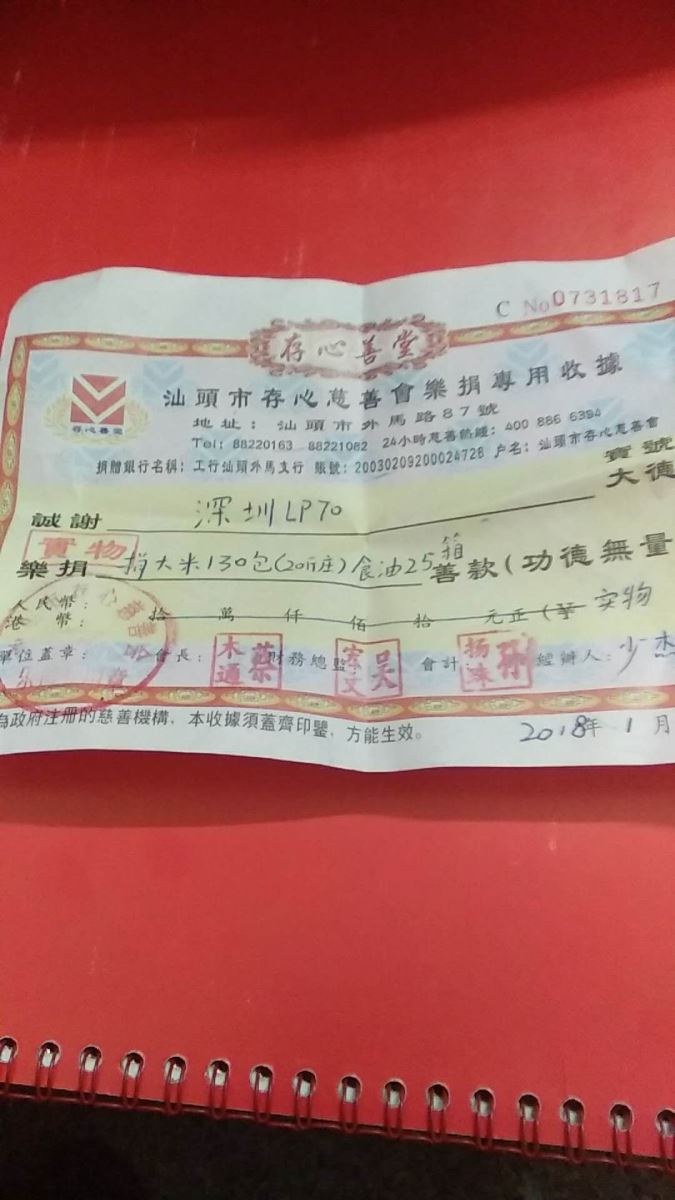 C No0731817
存心善堂
存心善堂
汕頭市存心慈善會樂捐專用收據
地址：汕頭市外馬路87號
Tel：88220163 88221082 24小時慈善熱綫：400 886 6394
捐贈銀行名稱：工行汕頭外馬支行 賬號：20030209200024728 户名：汕頭市存心慈善會
誠謝 深圳LP70 寶號
大德
實物
樂捐 捐大米130包(20斤庄)食油25箱 善款(功德無量
人民幣：
港幣： 拾 萬 仟 佰 拾 元正 ( 实物
單位蓋章： 會長：蔡木通 財務總監 吴 會計 孫扬 經辦人：少杰
為政府注冊的慈善機構，本收據須蓋齊印鑒，方能生效。
2018年1月